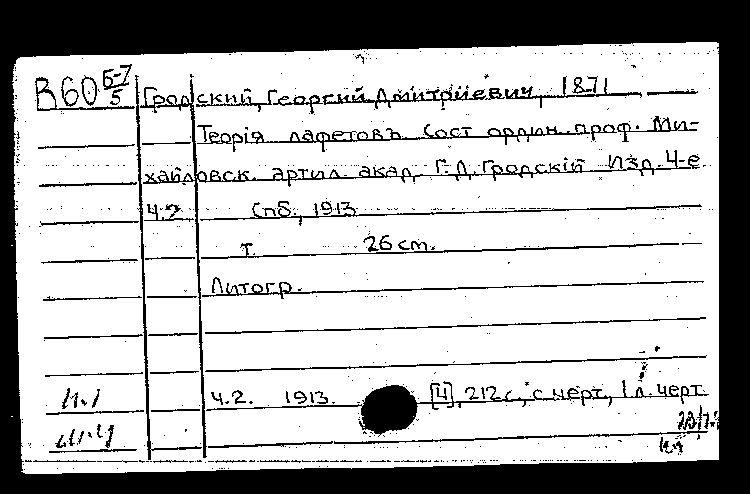 В60 Б-7/5 Гродский, Георгий Дмитриевич, 1871
Теорія лафетовъ. Сост. ордин. проф. Ми-
хайловск. артил. акад. Г.Д. Гродскій Изд. 4-е
Ч.2 Спб., 1913
т. 26 cm.
Литогр.
Ч.2. 1913. [4], 212 с., с черт., 1 л. черт.